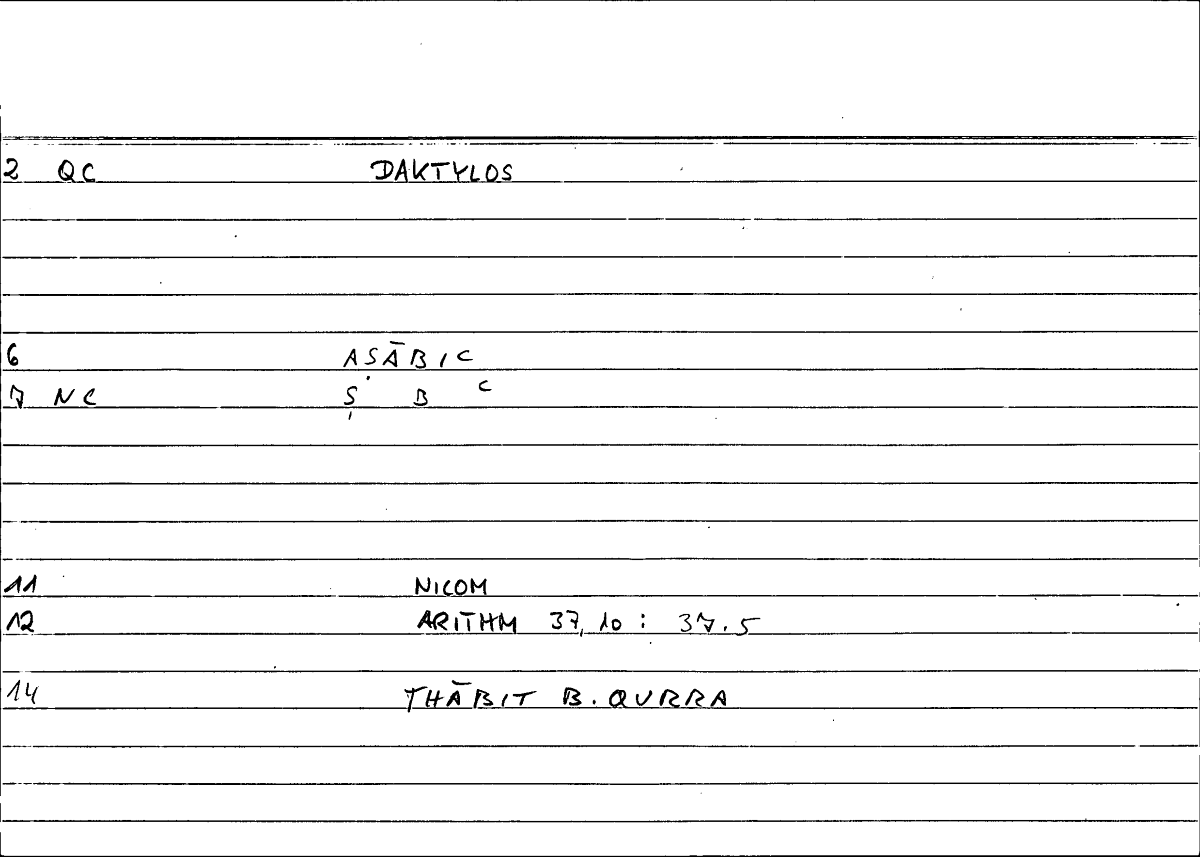 2 QC DAKTYLOS
6 AṢĀBIʿ
7 NC Ṣ B ʿ
11 NICOM
12 ARITHM 37,10 : 37.5
14 THĀBIT B. QURRA